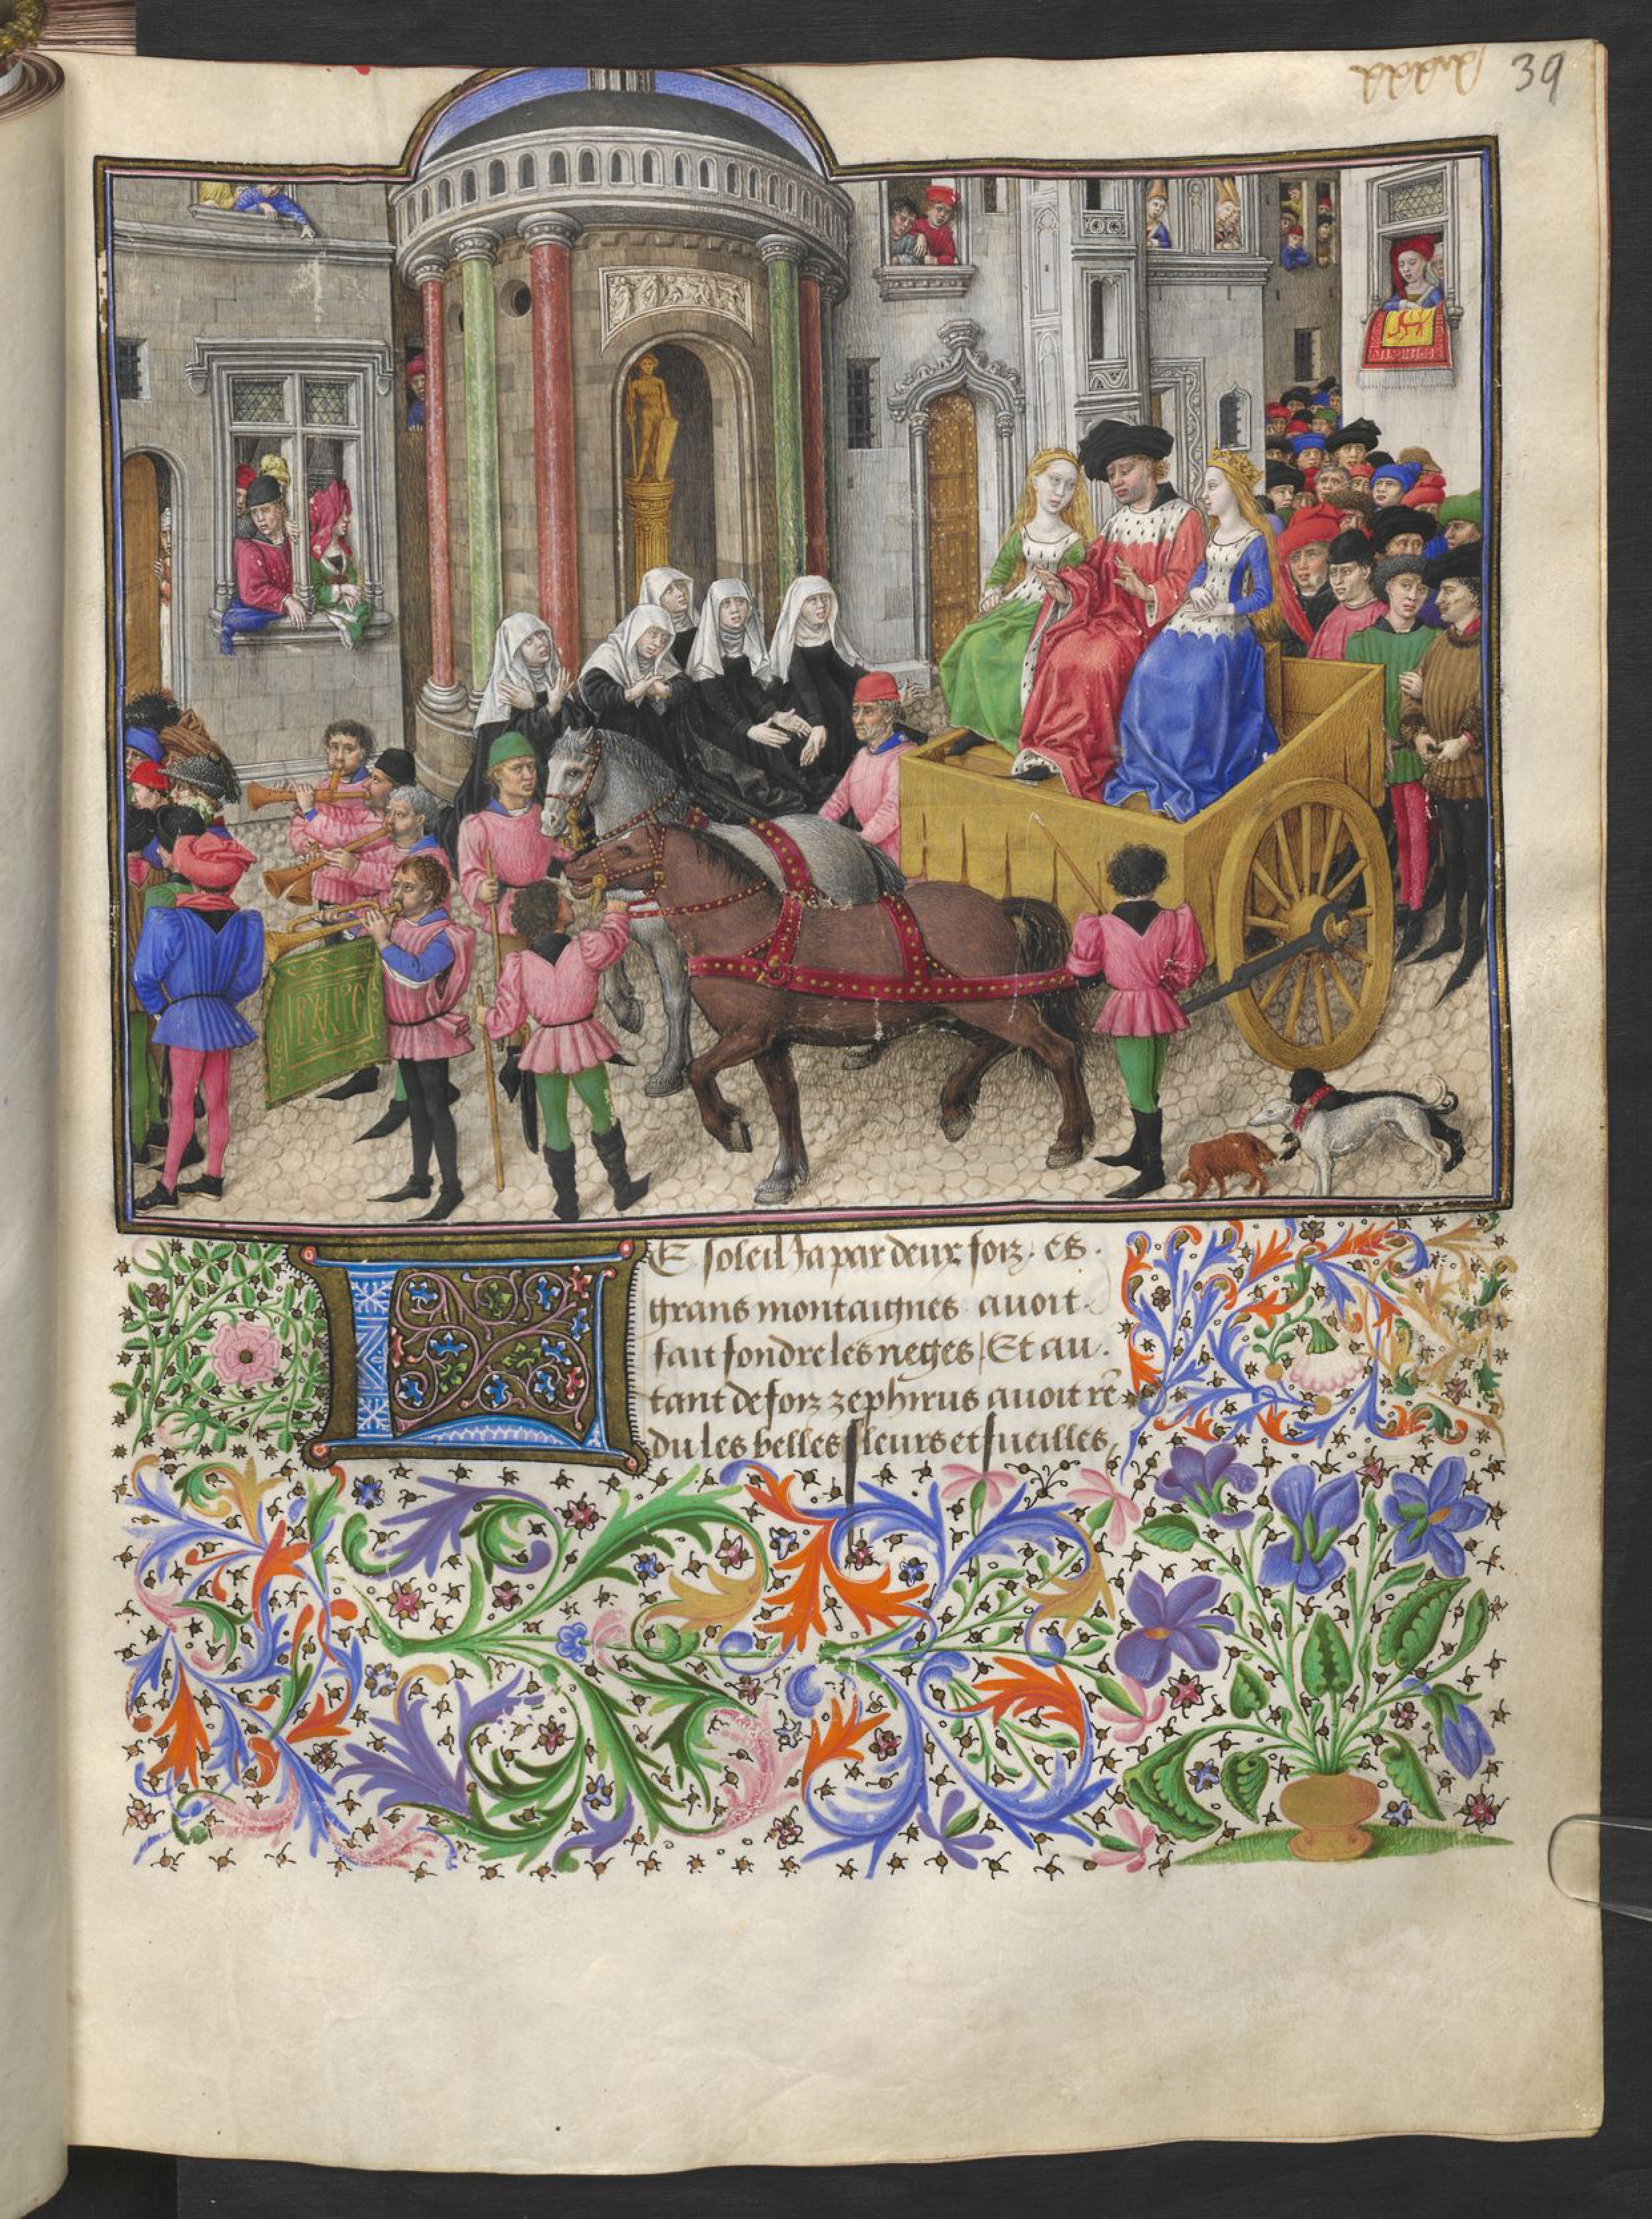 39
LE soleil Ja par deux foiz es
grans montaignes auoit
fait fondre les neges / Et au
tant de foiz zephirus auoit rẽ
du les belles fleurs et fueilles,